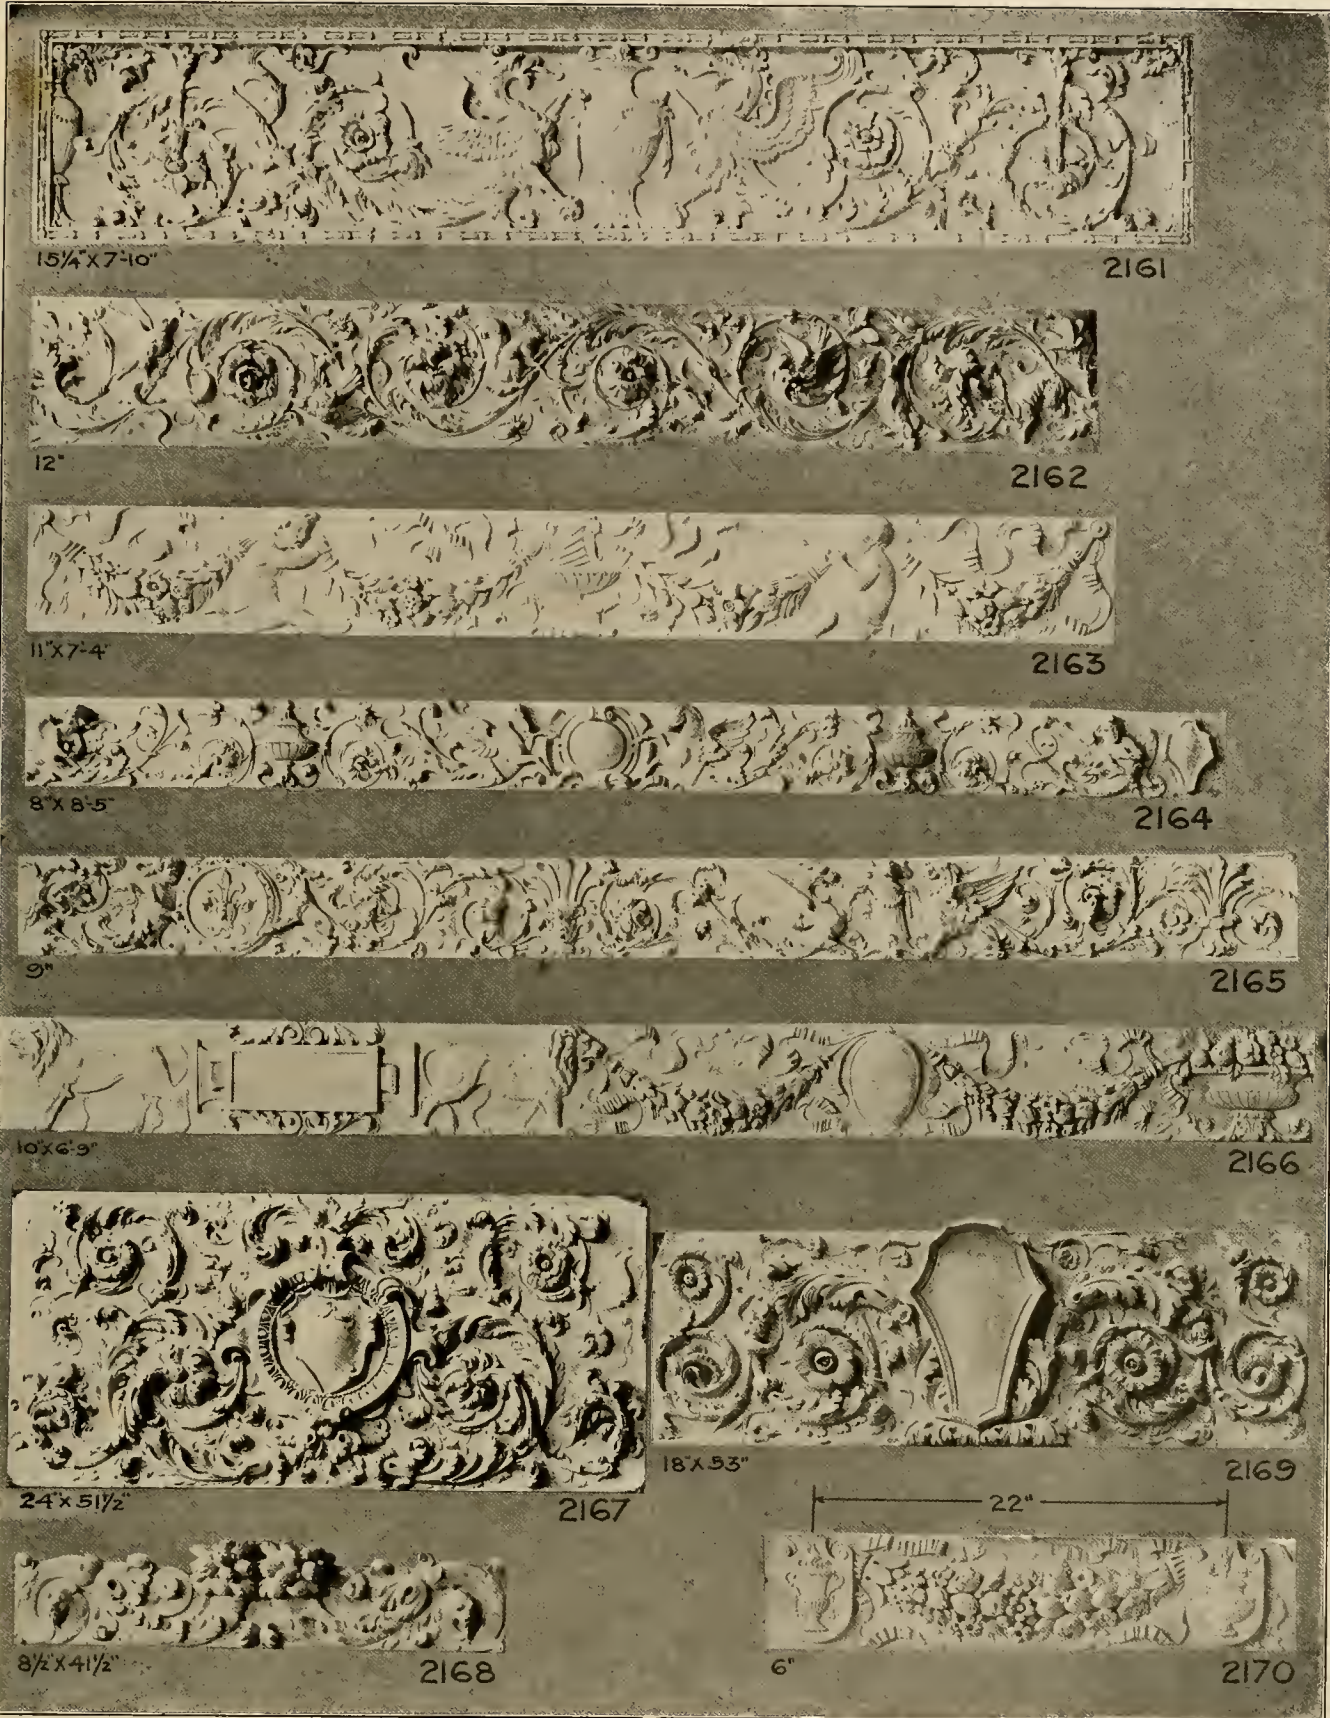 15¼"X7'-10"
2161
12"
2162
11"X7'-4"
2163
8"X8'-5"
2164
9"
2165
10"X6'-9"
2166
24"X51½"
2167
18"X53"
2169
22"
8½"X41½"
2168
6"
2170